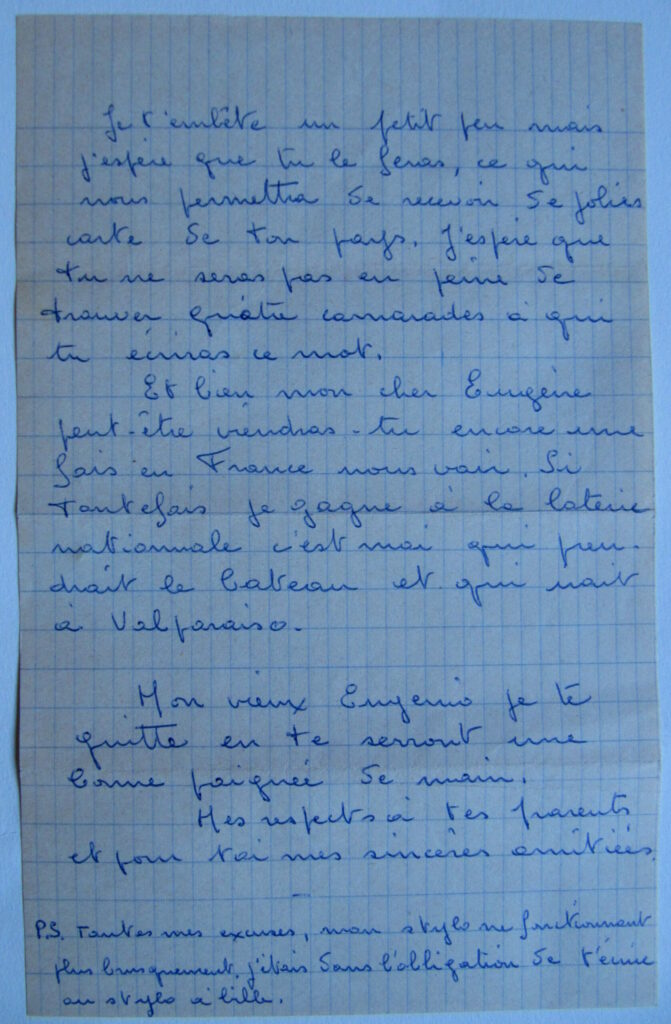 Je t'embête un petit peu mais
j'espère que tu le feras, ce qui
nous permettra de recevoir de jolies
carte de ton pays. J'espère que
tu ne seras pas en peine de
trouver quatre camarades à qui
tu écriras ce mot.
Et bien mon cher Eugène
peut-être viendras-tu encore une
fois en France nous voir. Si
toutefois je gagne à la loterie
nationnale c'est moi qui pren-
drait le bateau et qui irait
à Valparaiso.
Mon vieux Eugenio je te
quitte en te serront une
bonne poignée de main.
Mes respects à tes parents
et pour toi mes sincères amitiées.
P.S. Toutes mes excuses, mon stylo ne fonctionnant
plus brusquement, j'étais dans l'obligation de t'écrire
au stylo à bille.